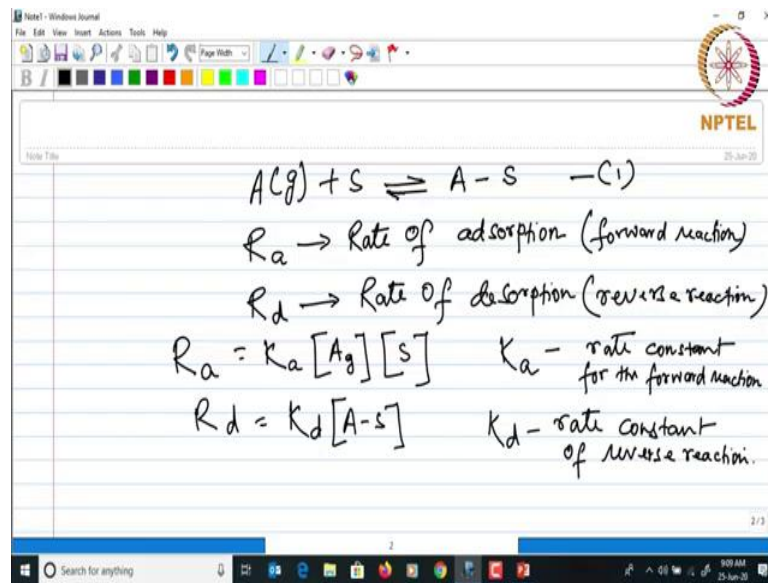 Note1 - Windows Journal
File Edit View Insert Actions Tools Help
Page Width
B I
NPTEL
Note Title
25-Jun-20
A(g) + S ⇌ A - S - (1)
Ra → Rate Of adsorption (forward reaction)
Rd → Rate Of desorption (reverse reaction)
Ra = Ka [Ag] [S] Ka - rate constant
for the forward reaction
Rd = Kd [A-S] Kd - rate constant
of reverse reaction.
2/3
2
Search for anything
9:09 AM
25-Jun-20